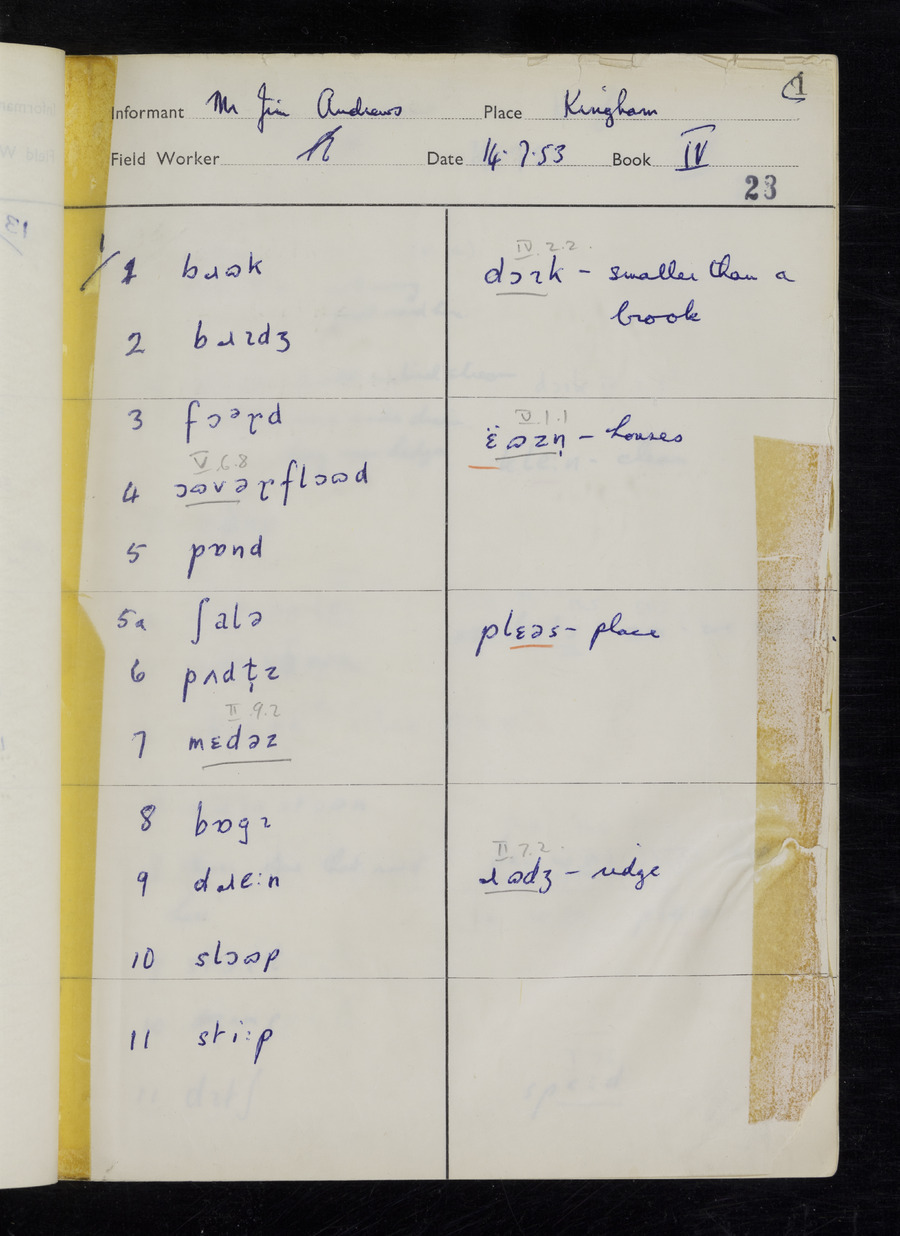 1
Informant Mr Jim Andrews Place Kingham
Field Worker Date 14.7.53 Book IV
23
1/
1 bɹɷk
IV.2.2.
dɔɪk – smaller than a
brook
2 bɹɪdʒ
3 fɔəɽd
V.1.1
ɛ̈ɷzn̩ – houses
V.6.8
4 ɔɷvəɽflɔɷd
5 pɒnd
5a ʃalə
plɛəs – place
6 pʌdɫ̩z
II.9.2
7 mɛdəz
8 bɒgɪ
II.7.2.
ɹɷdʒ – ridge
9 dɹe:n
10 slɔɷp
11 sti:p